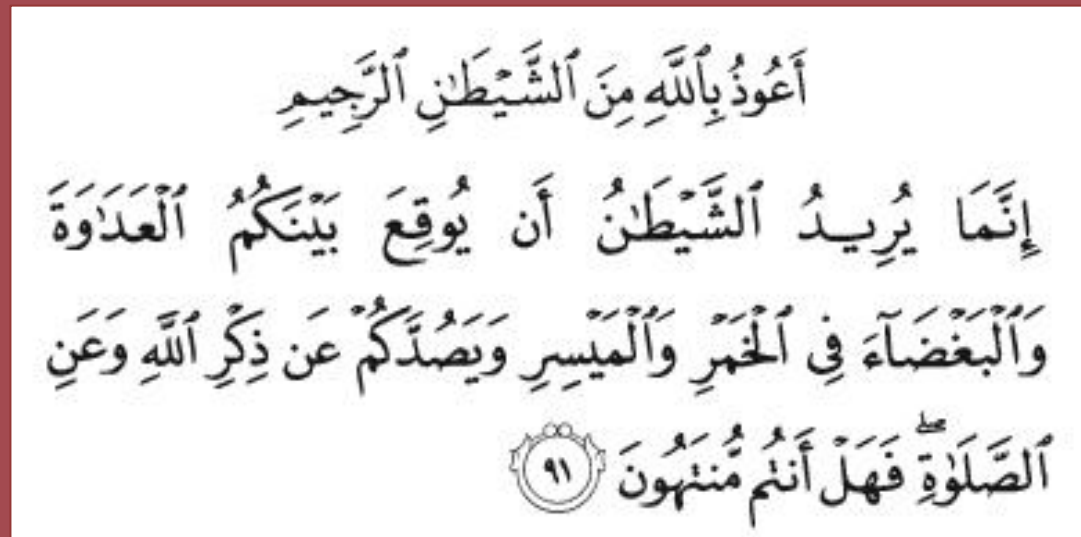 أَعُوذُ بِٱللَّهِ مِنَ ٱلشَّيْطَٰنِ ٱلرَّجِيمِ
إِنَّمَا يُرِيدُ ٱلشَّيْطَٰنُ أَن يُوقِعَ بَيْنَكُمُ ٱلْعَدَٰوَةَ
وَٱلْبَغْضَآءَ فِى ٱلْخَمْرِ وَٱلْمَيْسِرِ وَيَصُدَّكُمْ عَن ذِكْرِ ٱللَّهِ وَعَنِ
ٱلصَّلَوٰةِ ۖ فَهَلْ أَنتُم مُّنتَهُونَ ٩١